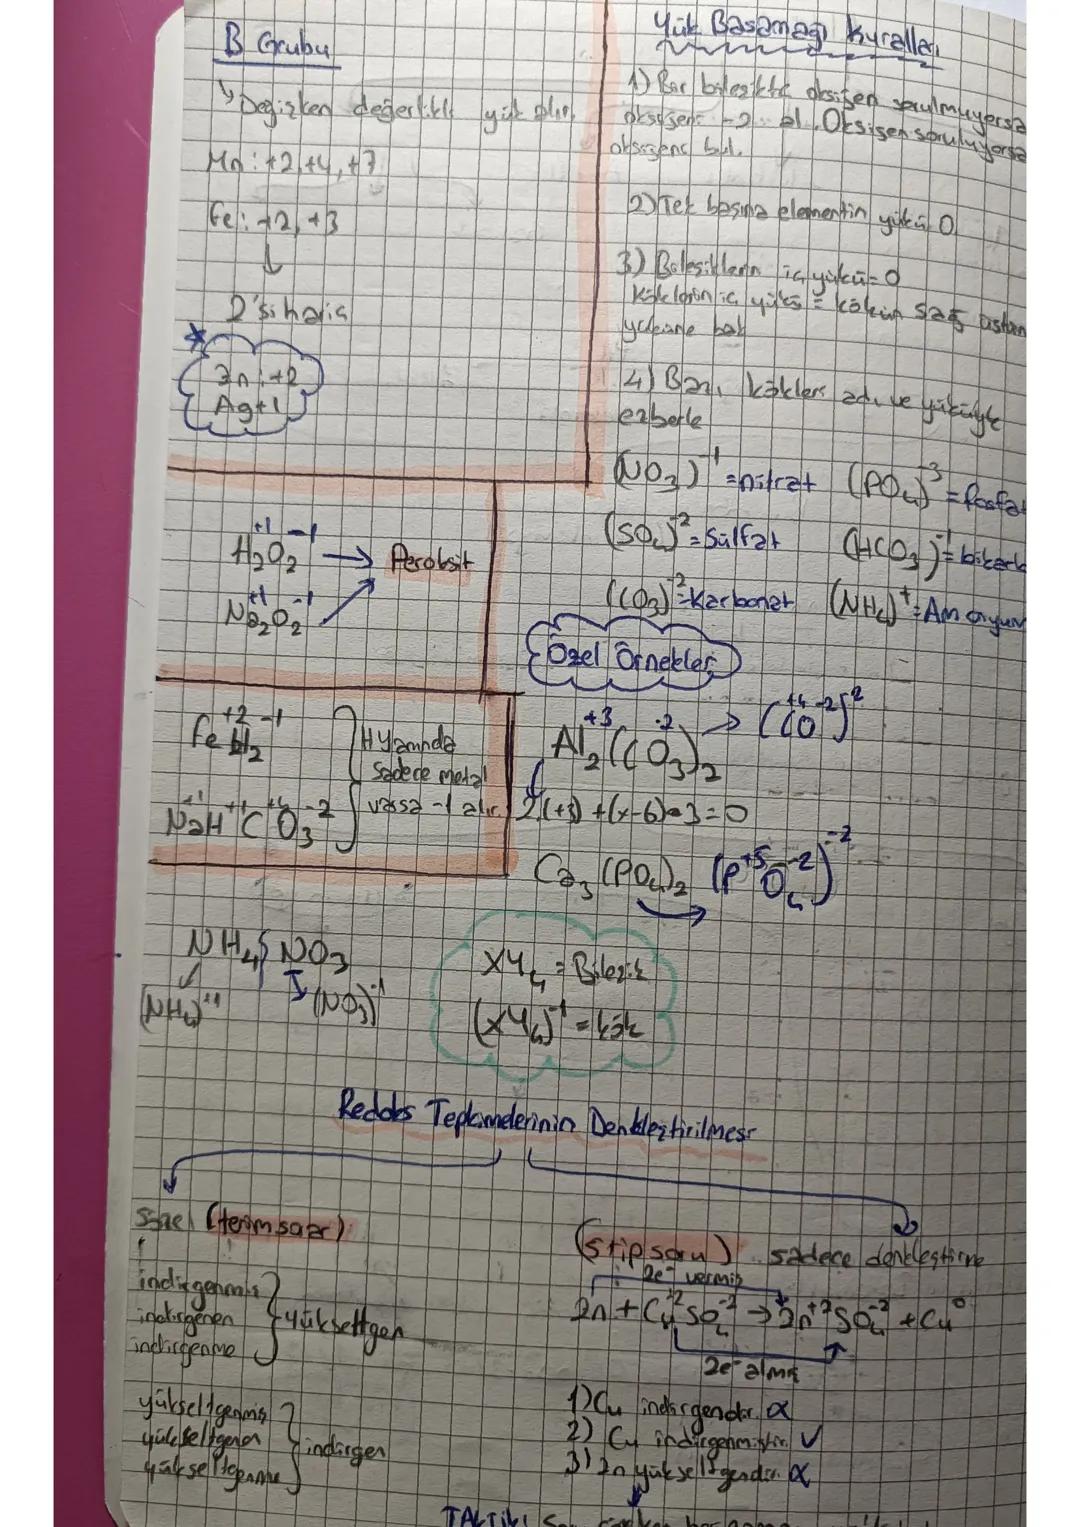 B Grubu
↳ Değişken değerlikli yük alır.
Mn: +2, +4, +7
Fe: +2, +3
↓
2'si hariç
* Zn: +2
Ag+1
Yük Basamağı Kuralları
1) Bir bileşikte oksijen sorulmuyorsa
oksijeni -2 al. Oksijen soruluyorsa
oksijeni bul.
2) Tek başına elementin yükü 0
3) Bileşiklerin iç yükü = 0
Köklerin iç yükü = kökün sağ üstün
yüküne bak
4) Bazı kökleri adı ve yüküyle
ezberle
(NO₃)⁻¹ = nitrat (PO₄)⁻³ = fosfat
(SO₄)⁻² = Sülfat (HCO₃)⁻¹ = bikarb
(CO₃)⁻² = Karbonat (NH₄)⁺ = Amonyum
H₂⁺¹O₂⁻¹ → Peroksit
Na₂⁺¹O₂⁻¹
Fe⁺²H₂⁻¹
Na⁺¹H⁺¹C⁺⁴O₃⁻²
H yanında
sadece metal
varsa -1 alır.
Özel Örnekler
Al₂⁺³(CO₃)₂⁻² → (C⁺⁴O⁻²)⁻²
2(+3) + (x-6)•3 = 0
Ca₃(PO₄)₂ (P⁺⁵O₄⁻²)⁻²
NH₄ NO₃
(NH₄)⁺¹ (NO₃)⁻¹
XY₄ = Bileşik
(XY₄)⁻¹ = kök
Redoks Tepkimelerinin Denkleştirilmesi
(terim sorar)
indirgenmiş
indirgenen
indirgenme
yükseltgen
yükseltgenmiş
yükseltgenen
yükseltgenme
indirgen
(5 tip soru) sadece denkleştirme
2e⁻ vermiş
Zn + Cu⁺²SO₄⁻² → Zn⁺²SO₄⁻² + Cu⁰
2e⁻ almış
1) Cu indirgendir. α
2) Cu indirgenmiştir. ✓
3) Zn yükseltgendir. α
TAKTİK: